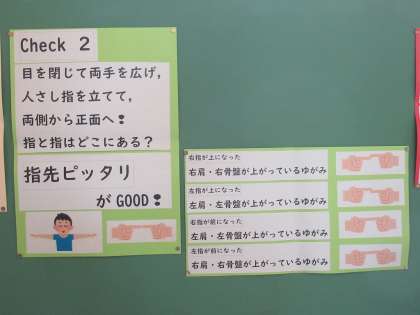 Check 2
目を閉じて両手を広げ,
人さし指を立てて,
両側から正面へ❢
指と指はどこにある?
指先ピッタリ
が GOOD❢
右指が上になった
右肩・右骨盤が上がっているゆがみ
左指が上になった
左肩・左骨盤が上がっているゆがみ
右指が前になった
左肩・左骨盤が上がっているゆがみ
左指が前になった
右肩・右骨盤が上がっているゆがみ